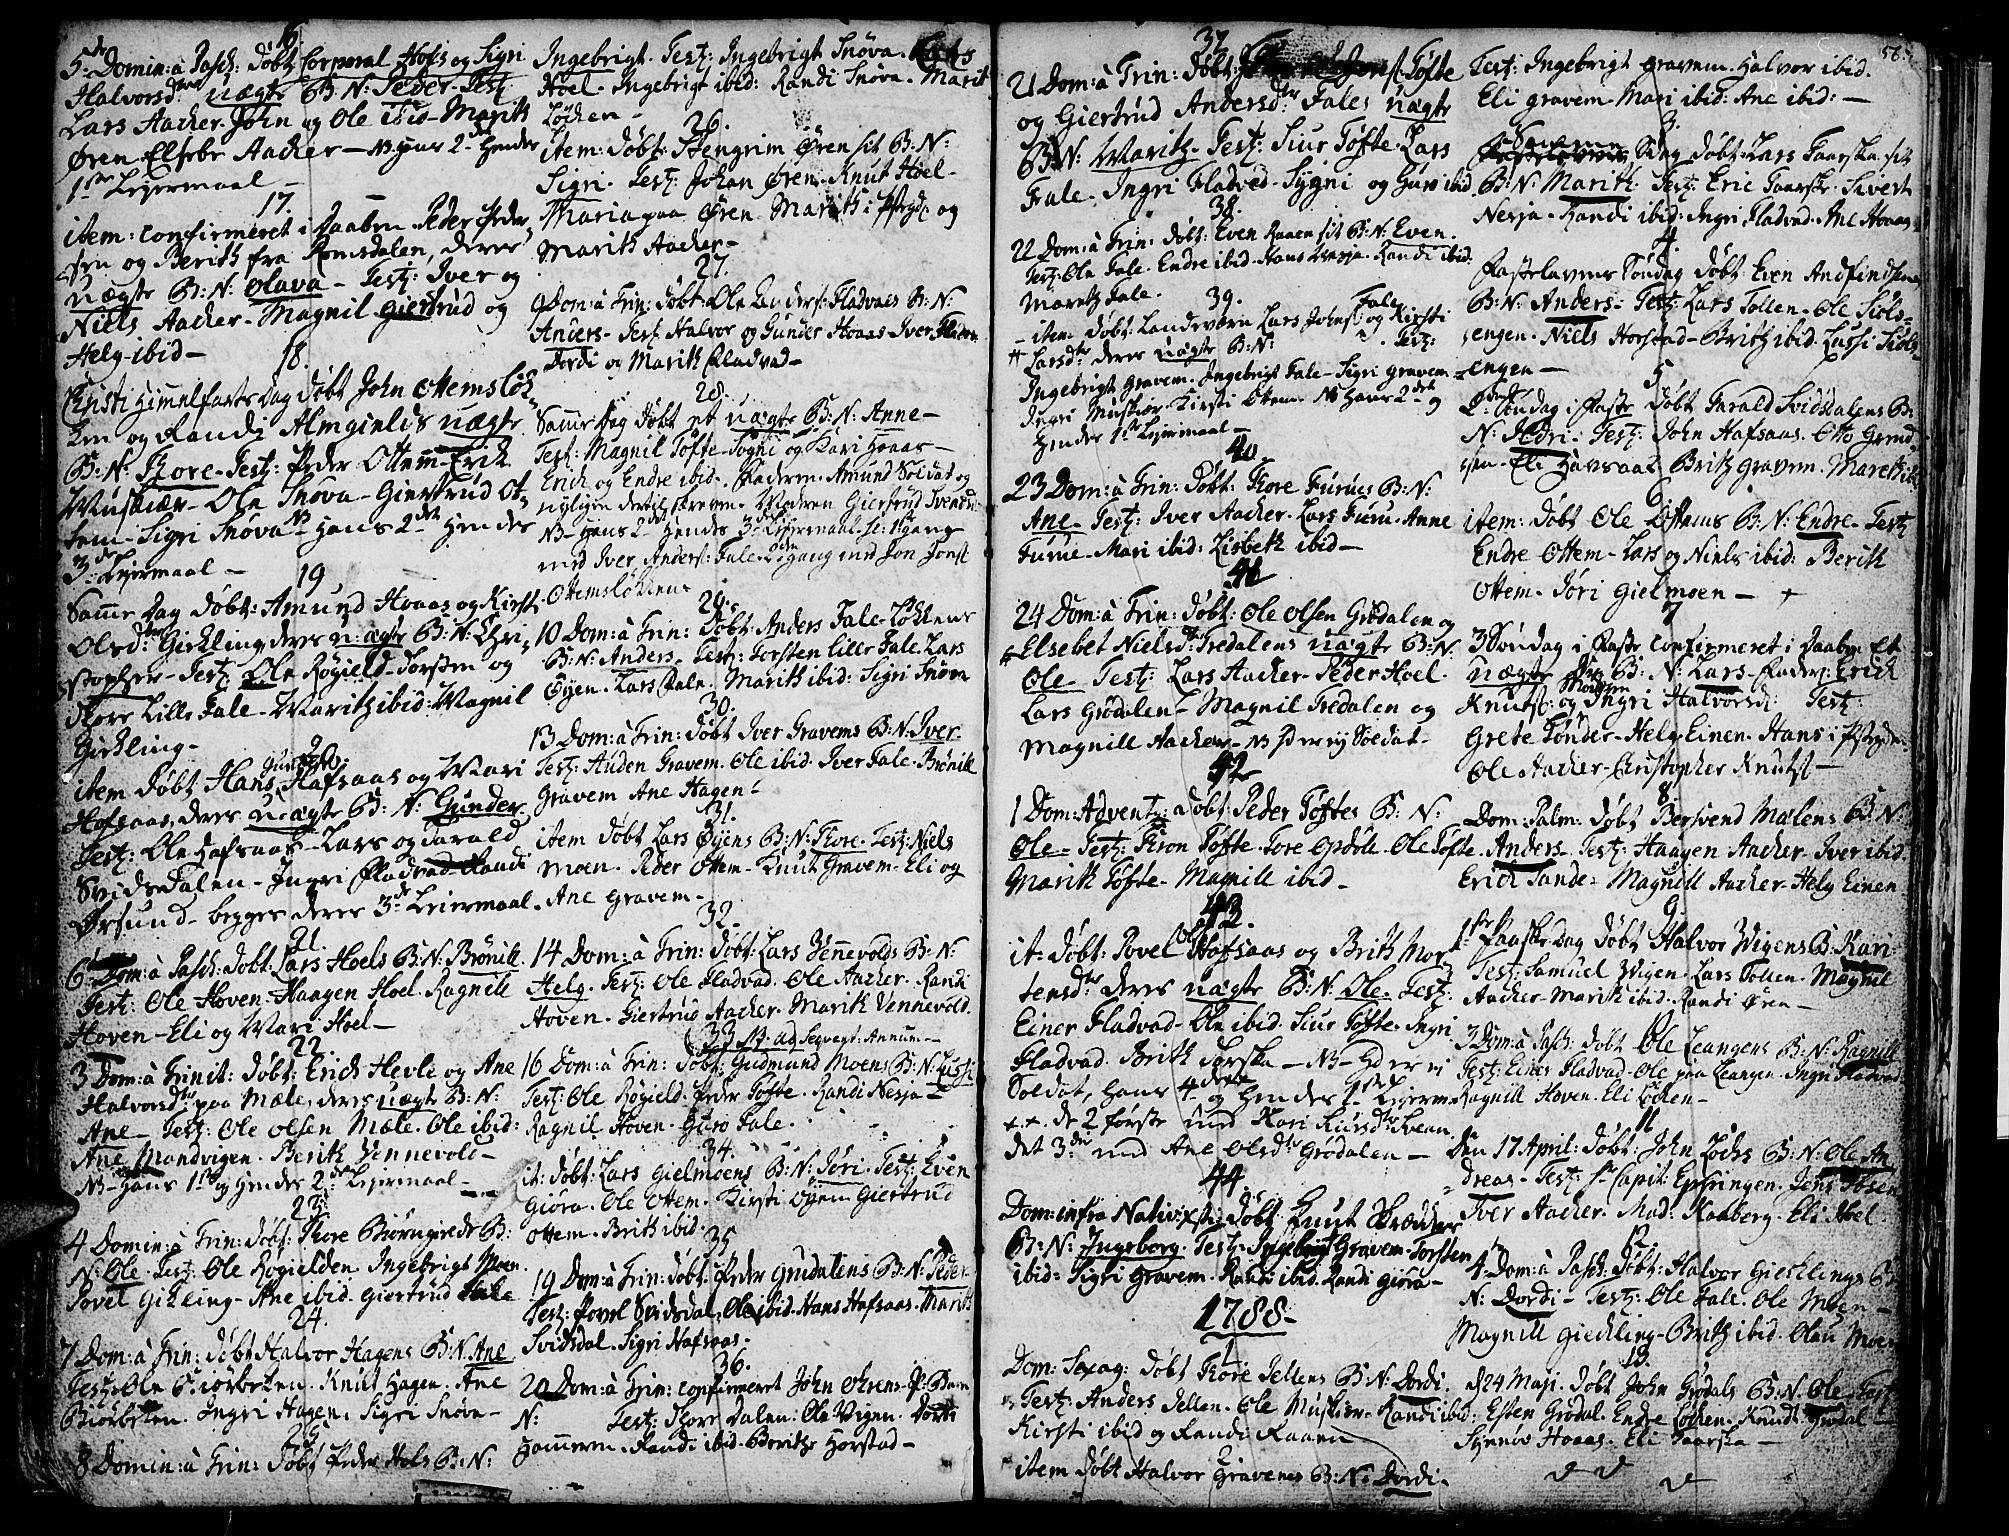 16
5te Domin: à Pasch: døbt Corporal Hofs og Sigri
Halvorsdtr uægte B:N: Peder - Test:
Lars Aacher. John og Ole ibid - Marith
Øren Elsebe Aacher - NB hans 2de hendes
1ste Lejermaal -
17
item: confirmeret i Daaben Peder
sen og Berith fra Romsdalen, deres
uægte B:N: Olava - Test: Iver og
Niels Aacher - Magnil Giertrud og
Helg ibid -
18.
Christi Himmelfarts Dag døbt John Ottemsløk
ken og Randi Almgields uægte
B:N: Thore - Test: Peder Ottem - Erik
Muskiær - Ole Snøva - Giertrud Ot-
tem - Sigri Snøva NB hans 2det hendes
3de Lejermaal -
19
Samme Dag døbt: Amund Hoaas og Kirsti
Olsdtr Gickling deres uægte B:N: Chri-
stopher - Test: Ole Røgield - Torsten og
Thore Lille Fale - Marith ibid: Magnil
Gickling -
20
item døbt Hans Hafsaas og Mari
Hofsaas, deres uægte B:N: Gunder
Test: Ole Hafsaas - Lars og Tarald
Svidsdalen - Ingri Fladvad Randi
Ørsund - begges deres 3de Lejermaal.
21.
6 Dom: à Pasch: døbt Lars Hoels B:N: Brønill
Test: Ole Hoven - Haagen Hoel. Ragnill
Hoven - Eli og Mari Hoel -
22.
3 Dom: à Trinit: døbt: Erich Hevle og Ane
Halvorsdtr paa Mæle, deres uægte B:N:
Ane - Test: Ole Olsen Mæle. Ole ibid:
Ane Mandvigen. Berith Vennevold -
NB hans 1ste og hendes 2det Lejermaal -
23.
4 Domin: à Trin: døbt: Thore Biørngierds B:
N: Ole. Test: Ole Røgielden. Ingebrigt Moen.
Povel Gikling - Ane ibid. Giertrud Fale
24.
7 Dom: à Trin: døbt Halvor Hagens B:N: Ane
Test: Ole Biørbeken. Knut Hagen. Ane
Biørbeken. Ingri Hagen. Sigri Snøve -
25
8 Domin: à Trin: Døbt Peder Hols B:N:
Ingebrigt. Test: Ingebrigt Snøva. Lars
Hoel - Ingebrigt ibid: Randi Snøva - Marit
Løcken -
26.
item: døbt: Stengrim Øren sit B:N:
Sigri. Test: Johan Øren - Knut Hoel -
Maria paa Øren - Marith i Præstgd: og
Marith Aacher -
27.
9 Dom: à Trin: døbt: Ole Fladvads B:N:
Anders - Test: Halvor og Gunder Hoaas Iver Fladvad
Dordi og Marith Fladvad -
28.
Samme Dag døbt et uægte B:N: Anne -
Test: Magnil Tøfte - Sygni og Kari Hoaas -
Erich og Endre ibid. Faderen Amund Soldat og
nyligen dertil skreven. Moderen Giertrud Ivers
NB - hans 2de hendes 3die Lejermaal - 1ste gang
med Iver Anders: Fale - 2den gang med Jon Jonst
Ottemsløkkens
29.
10 Dom: à Trin: døbt Anders Fale-Løkkens
B:N: Anders - Test: Torsten Lille Fale. Lars
Øyen. Lars Fale. Marith ibid: Sigri Snøva
30.
13 Dom: à Trin: døbt Iver Gravems B:N: Iver
Test: Auden Gravem. Ole ibid. Iver Fale. Brønill
Gravem Ane Hagen -
31.
item døbt Lars Øyens B:N: Thore - Test: Niels
Moen. Peder Ottem - Knut Gravem - Eli og
Ane Gravem -
32.
14 Dom: à Trin: døbt: Lars Vennevolds B:N:
Helg. Test: Ole Fladvad. Ole Aacher. Randi
Hoven. Giertrud Aacher. Marith Vennevold.
(33 NB ad sequent: Annum -
16 Dom: à Trin: døbt: Gudmund Moens B:N: Lussi
Test: Ole Røgield. Peder Tøfte. Randi Nesja -
Ragnil Hoven. Guro Fale.
34.
it: døbt: Lars Gielmoens B:N: Jøri. Test: Even
Giøra. Ole Ottem. Kirsti Øyen Giertrud
Ottem. Brith ibid.
35
19 Dom: à Trin: døbt Peder Grødalens B:N: Peder
Test: Povel Svidsdal, Ole ibid. Hans Hafsaas. Marit
Svidsdal. Sigri Hafsaas.
36.
20 Dom: à Trin: confirmeret John Ørens P: Barn
N: Test: Thore Dalen: Ole Vigen. Dordi
Hammeren. Randi ibid. Berithe Horstad -
37.
21 Dom: à Trin: døbt Jonst Tøfte
og Giertrud Andersdtr Fales uægte
B:N: Marith. Test: Siur Tøfte. Lars
Fale. Ingri Fladvad - Sygni og Guro ibid
38.
22 Dom: à Trin: døbt: Even Raaen sit B:N: Even.
Test: Ole Fale. Endre ibid. Hans Nesja. Randi ibid.
Marith Fale.
39.
- item døbt: Landeværn Lars Johns: Fale og Kirsti
Larsdtr deres uægte B:N: Test:
Ingebrigt Gravem. Ingebrigt Fale - Sigri Gravem -
Ingri Muskiær. Kirsti Ottem. NB hans 2det og
hendes 1ste Lejermaal -
40.
23 Dom: à Trin: døbt: Thore Furues B:N:
Ane - Test: Iver Aacher - Lars Furu. Anne
Furue - Mari ibid: Lisbeth ibid -
41
24 Dom: à Trin: døbt: Ole Olsen Grødalen og
Elsebet Nielsdtr Tredalens uægte B:N:
Ole - Test: Lars Aacher - Peder Hoel.
Lars Grødalen - Magnil Tredalen og
Magnill Aacher - NB Han er ej Soldat -
42
1 Dom: Advent: døbt: Peder Tøftes B: N:
Ole - Test: Thron Tøfte - Tore Opdøl - Ole Tøfte.
Marith Tøfte - Magnill ibid -
43
it: døbt: Povel Ols: Hofsaas og Brith Mor-
tensdtr deres uægte B:N: Ole. Test:
Einer Fladvad - Ole ibid. Siur Tøfte. Ingri
Fladvad. Brith Torske - NB - Han er ej
Soldat, hans 4de og hendes 1ste Lejerm
++. de 2 første med Kari
det 3de med Ane Olsdtr Grødalen -
44.
Dom: infra Nativ: Xsti døbt Knut Skrædder
B:N: Ingeborg. Test: Ingebrigt Gravem - Torsten
ibid: Sigri Gravem. Randi ibid. Randi Giøra -
1788 -
1
Dom: Sexag: døbt Thore Sellens B:N: Dordi.
Test: Anders Sellen. Ole Muskiær - Randi ibid:
Kirsti ibid og Randi Raaen
item døbt Halvor Gravems B:N: Dordi -
585
Test: Ingebrigt Gravem. Halvor ibid.
Eli Gravem - Mari ibid: Ane ibid: -
3.
Samme Dag døbt Lars Taarske sit
B:N: Marith. Test: Eric Taarske. Sivert
Nesja. Randi ibid. Ingri Fladvad. Ane Hoaas
4.
Fastelavens Søndag døbt Even Andfindsens
B:N: Anders. Test: Lars Tollen. Ole Siøls-
engen. Niels Horstad - Brith ibid. Lussi Siøls-
engen -
5
2den Søndag i Faste døbt Tarald Svidsdalens B:
N: Sidri. Test: John Hafsaas. Otto Grind
Eli Havsaas Brith Gravem. Mareth ibd.
6
item: døbt Ole Ottems B:N: Endre - Test:
Endre Ottem - Lars og Niels ibid: Berith
Ottem. Jøri Gielmoen - +
7
3 Søndag i Faste confirmeret i Daaben Et
uægte B: N: Lars - Fader: Erich
Knuts: og Moderen Ingri Halvorsd: Test:
Grete Tønder - Helg Einen - Hans i Præstgden
Ole Aacher - Christopher Knuts: -
8.
Dom: Palm: døbt Bersvend Mælens B: N:
Anders - Test: Haagen Aacher - Iver ibid.
Erich Sande: Magnill Aacher - Helg Einen
9
1ste Paaske-Dag døbt Halvor Wigens B: Kari
Test: Samuel Wigen - Lars Tollen. Magnil
Aacher - Marith ibid. Randi Øren -
10
3 Dom: à Pasch: døbt Ole Leangens B: N: Ragnill
Test: Einer Fladvad - Ole paa Leangen - Ingri Fladvad
Ragnill Hoven. Eli Løcken -
11
Den 17 April: døbt: John Løchs B:N: Ole An
dreas - Test: Hr Capit: Epfringen. Jens Ibsen
Iver Aacher. Mad: Kaaberg. Eli Hoel
12.
4 Dom: à Pasch: døbt: Halvor Giechlings B:
N: Dordi - Test: Ole Fale. Ole Moen -
Magnill Giechling - Brith ibid. Olau Moen
13.
d 24 Maji. døbt John Grødals B: N: Ole - Test:
Esten Grødal. Endre Løcken. Knud Grødal -
Synnøv Hoaas. Eli Taarske -